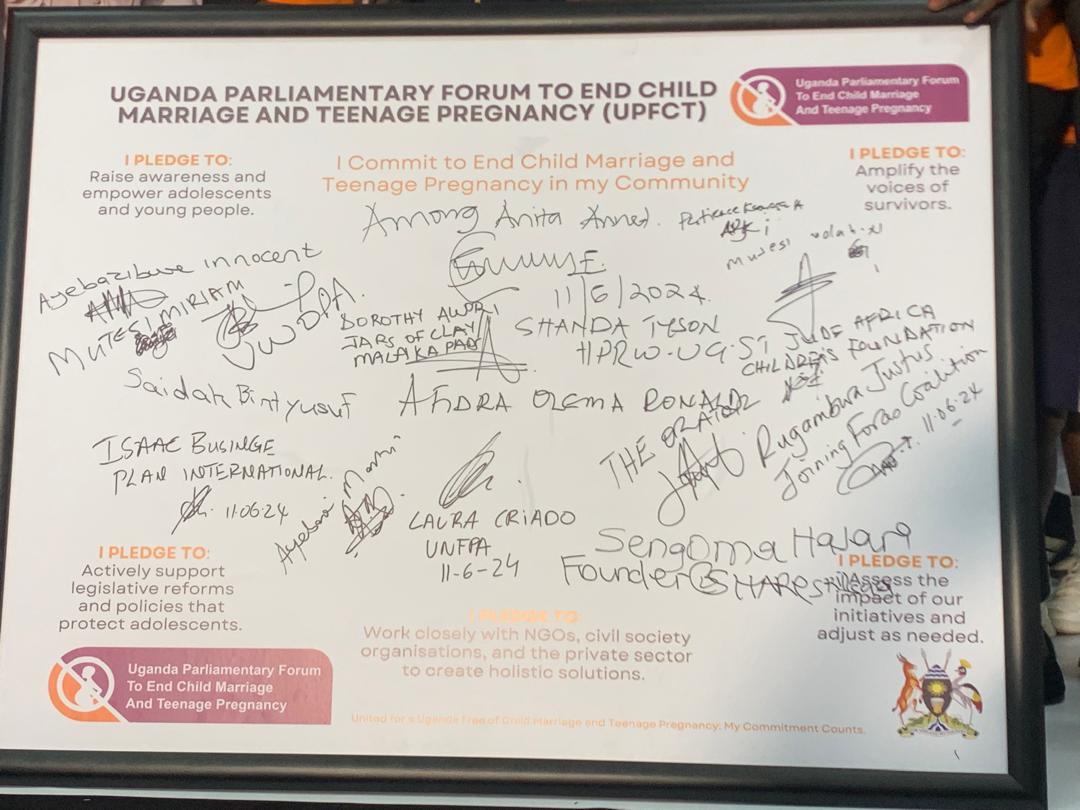 UGANDA PARLIAMENTARY FORUM TO END CHILD
MARRIAGE AND TEENAGE PREGNANCY (UPFCT)
Uganda Parliamentary Forum
To End Child Marriage
And Teenage Pregnancy
I PLEDGE TO:
Raise awareness and
empower adolescents
and young people.
I Commit to End Child Marriage and
Teenage Pregnancy in my Community
I PLEDGE TO:
Amplify the
voices of
survivors.
Among Anita Annet.
Ayebazibwe innocent
MUTESI MIRIAM
11/6/2024.
DOROTHY AWORI
JARS OF CLAY/
MALAKA PADS
SHANDA TYSON
HPRW-UG.
ST JUDE AFRICA
CHILDREN'S FOUNDATION
Saidah Bintyusuf
AFIDRA OLEMA RONALD
THE ORATOR
Rugambwa Justus
Joining Forces Coalition
11.06.24
ISAAC BUSINGE
PLAN INTERNATIONAL.
11.06.24
LAURA CRIADO
UNFPA
11-6-24
Sengoma Hajara
Founder @SHARE
I PLEDGE TO:
Actively support
legislative reforms
and policies that
protect adolescents.
I PLEDGE TO:
Work closely with NGOs, civil society
organisations, and the private sector
to create holistic solutions.
I PLEDGE TO:
Assess the
impact of our
initiatives and
adjust as needed.
Uganda Parliamentary Forum
To End Child Marriage
And Teenage Pregnancy
United for a Uganda Free of Child Marriage and Teenage Pregnancy: My Commitment Counts.